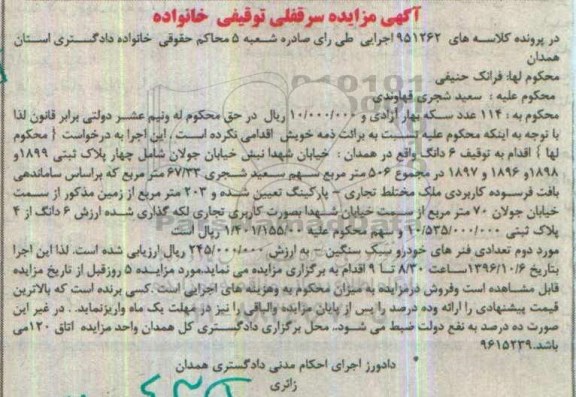 آگهی مزایده سرقفلی توقیفی خانواده
در پرونده کلاسه های ۹۵۱۲۶۲ اجرایی طی رای صادره شعبه ۵ محاکم حقوقی خانواده دادگستری استان
همدان
محکوم لها: فرانک حنیفی
محکوم علیه : سعید شجری قهاوندی
محکوم به : ۱۱۴ عدد سکه بهار آزادی و ۱۰/۰۰۰/۰۰۰ ریال در حق محکوم له ونیم عشر دولتی برابر قانون لذا
با توجه به اینکه محکوم علیه نسبت به برائت ذمه خویش اقدامی نکرده است ، این اجرا به درخواست { محکوم
لها } اقدام به توقیف ۶ دانگ واقع در همدان : خیابان شهدا نبش خیابان جولان شامل چهار پلاک ثبتی ۱۸۹۹و
۱۸۹۸و ۱۸۹۶ و ۱۸۹۷ در مجموع ۵۰۶ متر مربع سهم سعید شجری ۶۷/۳۳ متر مربع که براساس ساماندهی
بافت فرسوده کاربردی ملک مختلط تجاری - پارکینگ تعیین شده و ۲۰۳ متر مربع از زمین مذکور از سمت
خیابان جولان ۷۰ متر مربع از سمت خیابان شهدا بصورت کاربری تجاری لکه گذاری شده ارزش ۶ دانگ از ۴
پلاک ثبتی ۱۰/۵۳۵/۰۰۰/۰۰۰ و سهم محکوم علیه ۱/۴۰۱/۱۵۵/۰۰ ریال است
مورد دوم تعدادی فنر های خودرو سبک سنگین - به ارزش ۲۴۵/۰۰۰/۰۰۰ ریال ارزیابی شده است. لذا این اجرا
بتاریخ ۱۳۹۶/۱۰/۶ساعت ۸/۳۰ تا ۹ اقدام به برگزاری مزایده می نماید.مورد مزایده ۵ روزقبل از تاریخ مزایده
قابل مشاهده است وفروش درمزایده به میزان محکوم به وهزینه های اجرایی است .کسی برنده است که بالاترین
قیمت پیشنهادی را ارائه وده درصد را پس از پایان مزایده والباقی را نیز در مهلت یک ماه واریزنماید . در غیر این
صورت ده درصد به نفع دولت ضبط می شود.. محل برگزاری دادگستری کل همدان واحد مزایده اتاق ۱۲۰می
باشد.۹۶۱۵۲۳۹
دادورز اجرای احکام مدنی دادگستری همدان
زائری